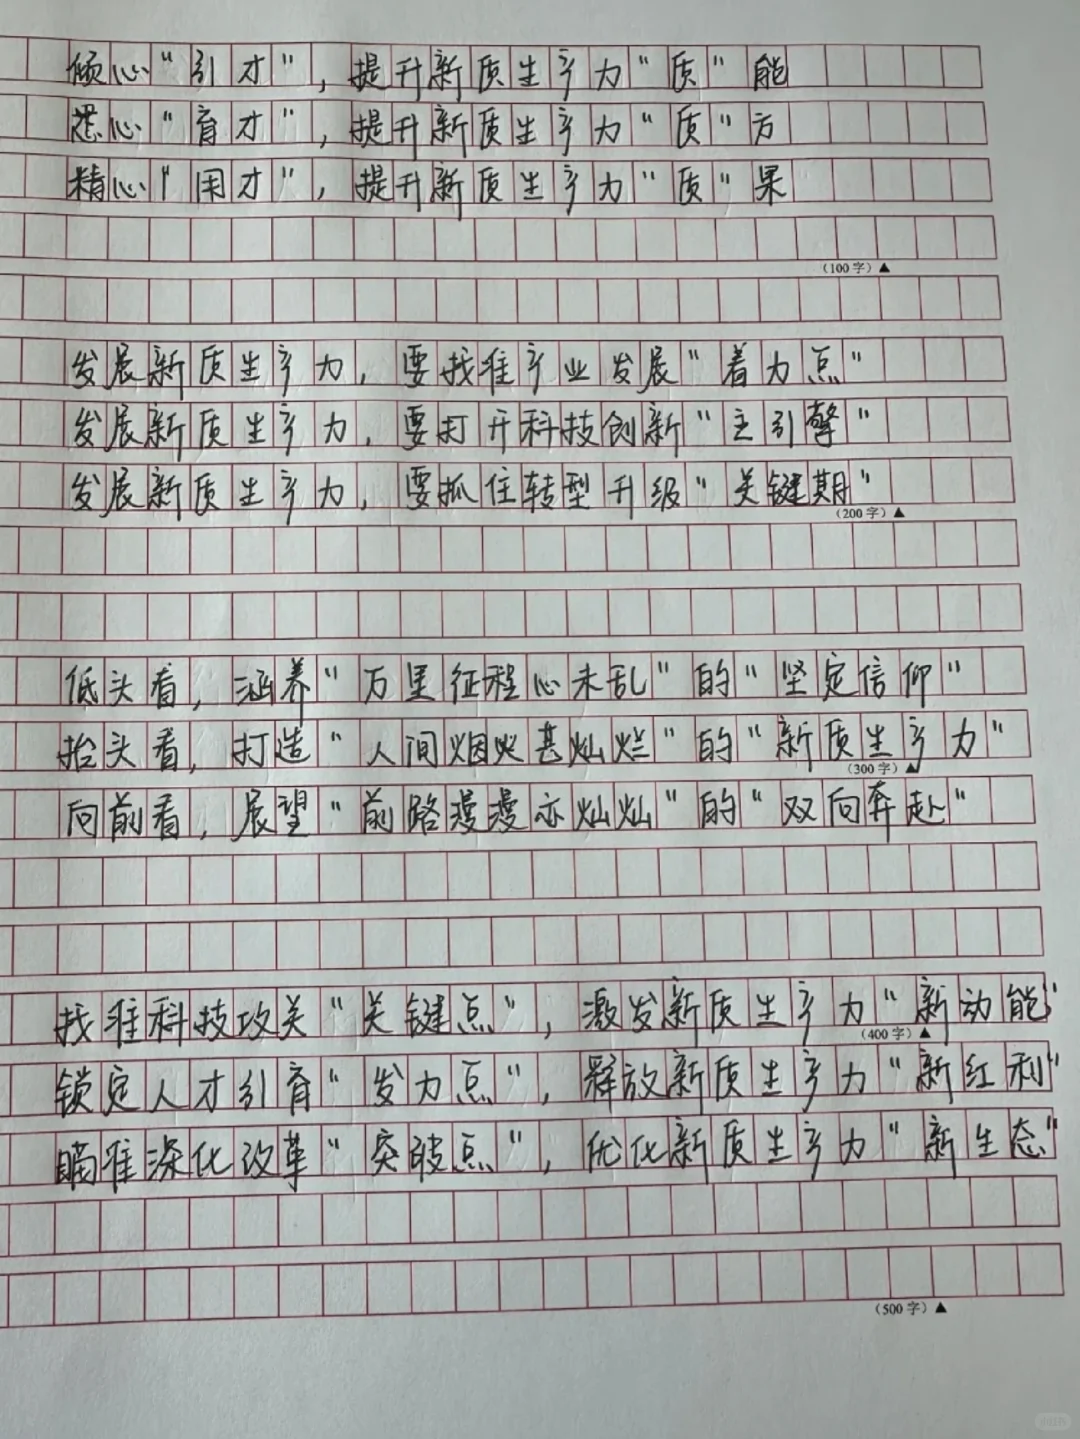 倾心“引才”，提升新质生产力“质”能
悉心“育才”，提升新质生产力“质”方
精心“用才”，提升新质生产力“质”果
（100字）▲
发展新质生产力，要找准产业发展“着力点”
发展新质生产力，要打开科技创新“主引擎”
发展新质生产力，要抓住转型升级“关键期”
（200字）▲
低头看，涵养“万里征程心未乱”的“坚定信仰”
抬头看，打造“人间烟火甚灿烂”的“新质生产力”
（300字）▲
向前看，展望“前路漫漫亦灿灿”的“双向奔赴”
找准科技攻关“关键点”，激发新质生产力“新动能”
（400字）▲
锁定人才引育“发力点”，释放新质生产力“新红利”
瞄准深化改革“突破点”，优化新质生产力“新生态”
（500字）▲
小红书